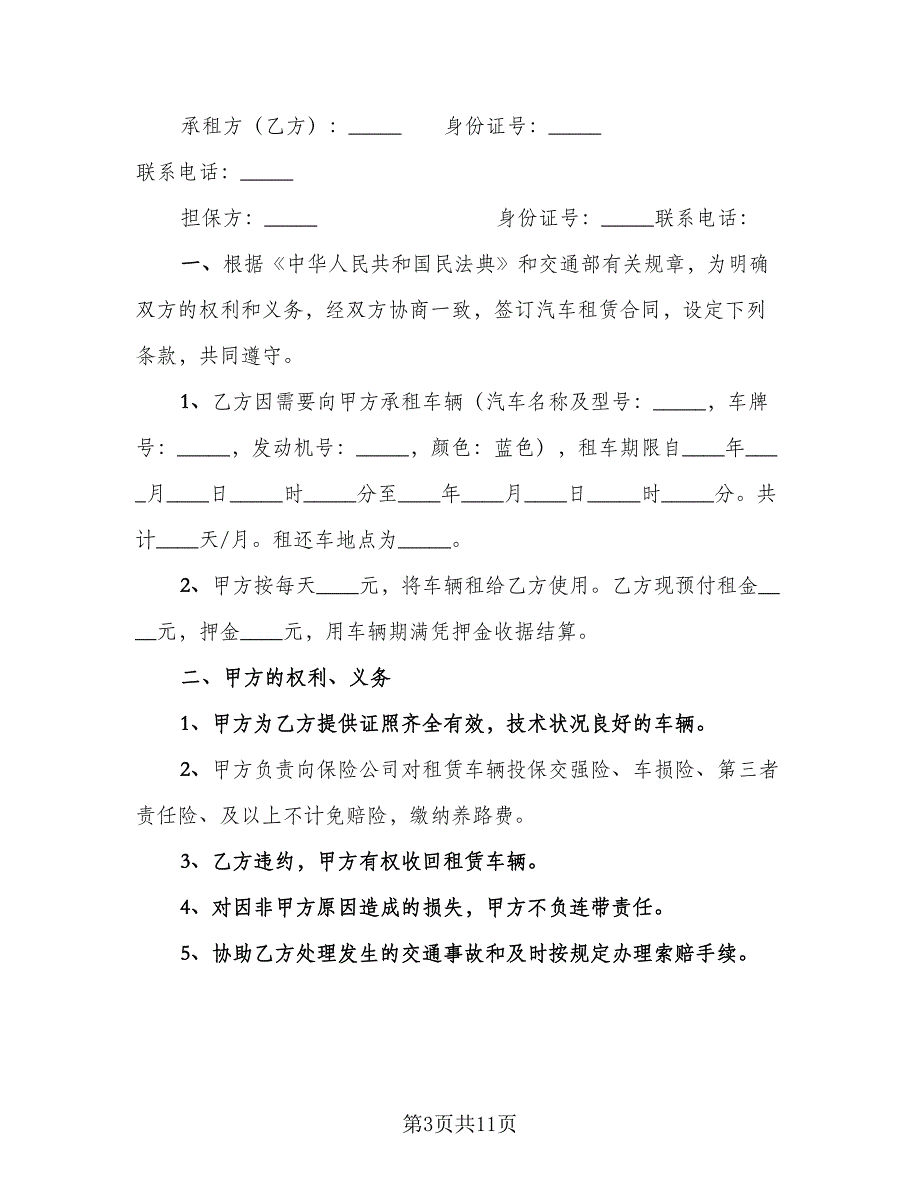 承租方（乙方）：_____ 身份证号：_____
联系电话：_____
担保方：_____ 身份证号：_____联系电话：
一、根据《中华人民共和国民法典》和交通部有关规章，为明确
双方的权利和义务，经双方协商一致，签订汽车租赁合同，设定下列
条款，共同遵守。
1、乙方因需要向甲方承租车辆（汽车名称及型号：_____，车牌
号：_____，发动机号：_____，颜色：蓝色），租车期限自____年___
_月____日_____时_____分至____年____月____日_____时_____分。共
计____天/月。租还车地点为_____。
2、甲方按每天____元，将车辆租给乙方使用。乙方现预付租金__
__元，押金____元，用车辆期满凭押金收据结算。
二、甲方的权利、义务
1、甲方为乙方提供证照齐全有效，技术状况良好的车辆。
2、甲方负责向保险公司对租赁车辆投保交强险、车损险、第三者
责任险、及以上不计免赔险，缴纳养路费。
3、乙方违约，甲方有权收回租赁车辆。
4、对因非甲方原因造成的损失，甲方不负连带责任。
5、协助乙方处理发生的交通事故和及时按规定办理索赔手续。
第3页共11页